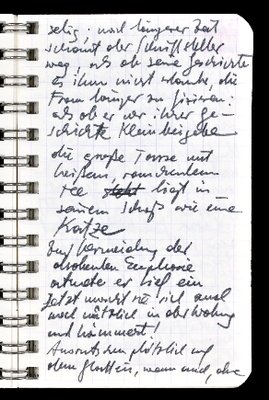 selig: nach längerer Zeit
schaut der Schriftsteller
weg, als ob seine Geschichte
es ihm nicht erlaube, die
Frau länger zu fixieren.
als ob er vor ihrer Ge-
schichte klein beigebe
die große Tasse mit
heißem, rauchendem
Tee liegt in
seinem Schoß wie eine
Katze
Zur Vermeidung der
drohenden Euphorie
atmete er tief ein
Jetzt macht sie sich auch
noch nützlich in der Wohnung
und hämmert!
Ausrutschen plötzlich auf
dem Glatteis, wenn auch, ohne